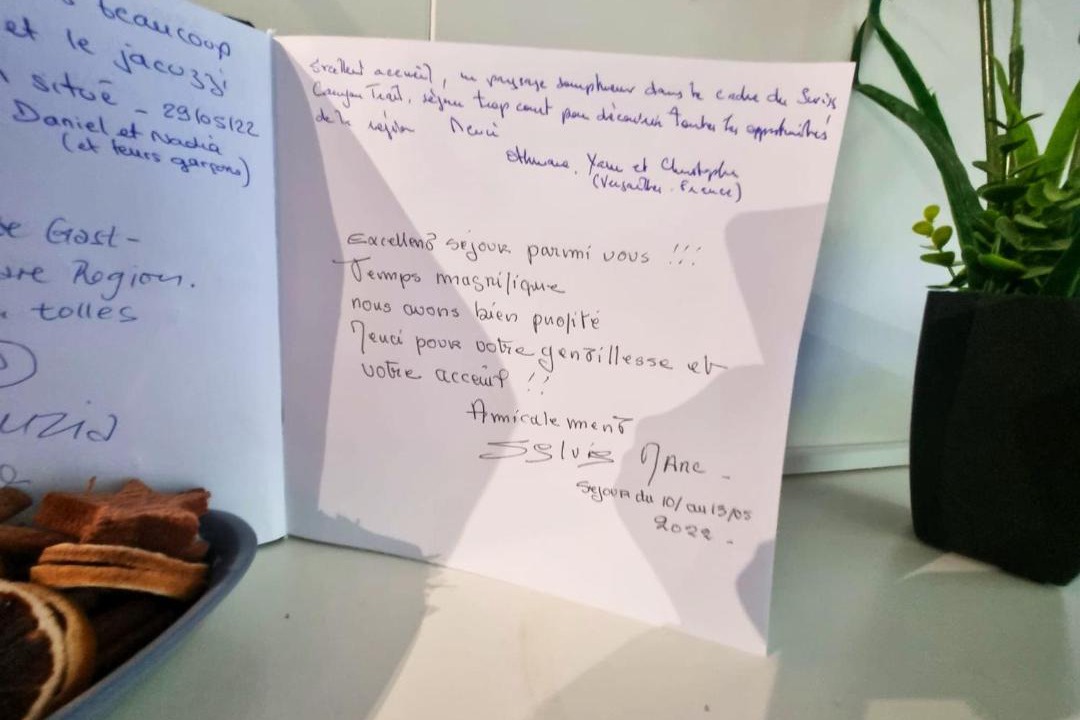 beaucoup
et le jacuzzi
situé - 29/05/22
Daniel et Nadia
(et leurs garçons)
Gast-
Region.
tolles
Excellent accueil, un paysage somptueux dans le cadre du
Trail, séjour trop court pour découvrir toutes les opportunités
de la région Merci
Yann et Christophe
(Versailles. France)
Excellent séjour parmi vous !!!
Temps magnifique
nous avons bien profité
Merci pour votre gentillesse et
votre acceuil !!
Amicalement
Sylvie Marc -
Sejour du 10/ au 15/05
2022 -